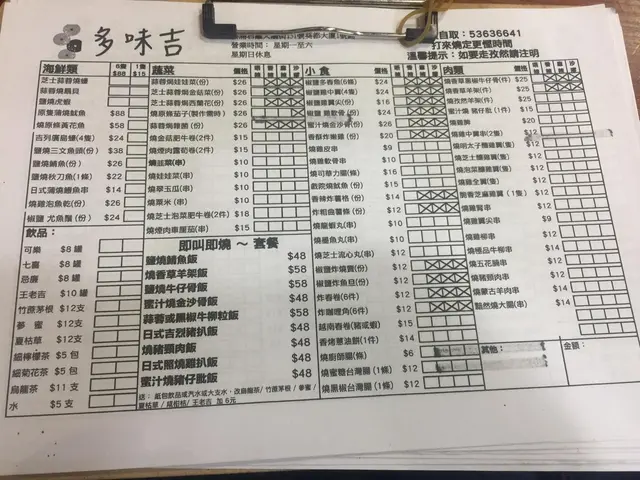 多味吉
營業時間： 星期一至六
星期日休息
自取：53636641
打來燒定更慳時間
溫馨提示：如要走孜然請注明
海鮮類 6隻 $88 1隻 $15
芝士蒜蓉燒蠔
蒜蓉燒扇貝
鹽燒虎蝦
原隻蒲燒魷魚 $88
燒原條黃花魚 $58
吉列廣島蠔(4隻) $24
鹽燒三文魚頭(份) $38
鹽燒鯖魚(份) $26
鹽燒秋刀魚(1條) $22
日式蒲燒鰻魚串 $14
燒雞泡魚乾(份) $26
椒鹽 尤魚鬚(份) $24
飲品：
可樂 $8 罐
七喜 $8 罐
忌廉 $8 罐
王老吉 $10 罐
竹蔗茅根 $12支
蔘 蜜 $12支
夏枯草 $12支
細檸檬茶 $5 包
細菊花茶 $5 包
烏龍茶 $11 支
水 $5 支
蔬菜 價格
蒜蓉燒娃娃菜(份) $26
芝士蒜蓉燒金菇菜(份) $26
芝士蒜蓉燒西蘭花(份) $26
燒原條茄子(製作需時) $26
蒜蓉燒韓菌(份) $26
燒金菇肥牛卷(2件) $15
燒煙肉露筍卷(2件) $15
燒韮菜(串) $10
燒娃娃菜(串) $10
燒翠玉瓜(串) $10
燒粟米(串) $10
燒芝士泡菜肥牛卷(2件) $18
燒煙肉車厘茄(串) $15
即叫即燒 ～ 套餐
鹽燒鯖魚飯 $48
燒香草羊架飯 $58
鹽燒牛仔骨飯 $58
蜜汁燒金沙骨飯 $48
蒜蓉或黑椒牛柳粒飯 $58
日式吉烈豬扒飯 $48
燒豬頸肉飯 $48
日式照燒雞扒飯 $48
蜜汁燒豬仔扒飯 $48
送： 紙包飲品或汽水或大支水，改烏龍茶/ 竹蔗茅根 / 參蜜 /
夏枯草 / 咸柑桔/ 王老吉 加 6元
小食 價格
椒鹽多春魚(6條) $24
椒鹽雞中翼(4隻) $24
椒鹽雞翼尖(份) $16
椒鹽 雞軟骨(份) $24
蜜汁燒金沙骨(份) $26
香酥炸雞腎(份) $20
燒雞皮串 $9
燒雞軟骨串 $10
燒司華力腸(條) $16
戲院燒魷魚(份) $15
香辣炸薯格(份) $14
炸粗曲薯條(份) $12
燒龍蝦丸(串) $10
燒墨魚丸(串) $10
芝士流心丸(串) $12
椒鹽炸燒賣(份) $12
椒鹽炸魚旦(份) $12
炸春卷(6件) $12
炸咖哩角(6件) $12
越南春卷(豬或蝦) $15
香烤蔥油餅(1件) $14
燒廚師腸(條) $6
燒蜜糖台灣腸(1條) $12
燒黑椒台灣腸(1條) $12
肉類 價格
燒香草黑椒牛仔骨(件) $25
燒香草羊架(件) $25
燒孜然羊架(件) $25
蜜汁燒 豬仔扒(1件) $15
燒雞髀 $15
燒雞中翼串(2隻) $12
燒明太子釀雞翼(隻)
燒芝士釀雞翼(隻)
燒泡菜釀雞翼(隻)
燒雞全翼(隻)
脆香芝麻雞翼(1隻) $12
燒雞腎串 $12
燒雞翼尖串 $9
燒雞柳串 $12
燒極品牛柳串 $14
燒五花腩串 $12
燒豬頸肉串 $12
燒蒙古羊肉串 $12
豁然燒大腸(串) $14
其他：
金額：